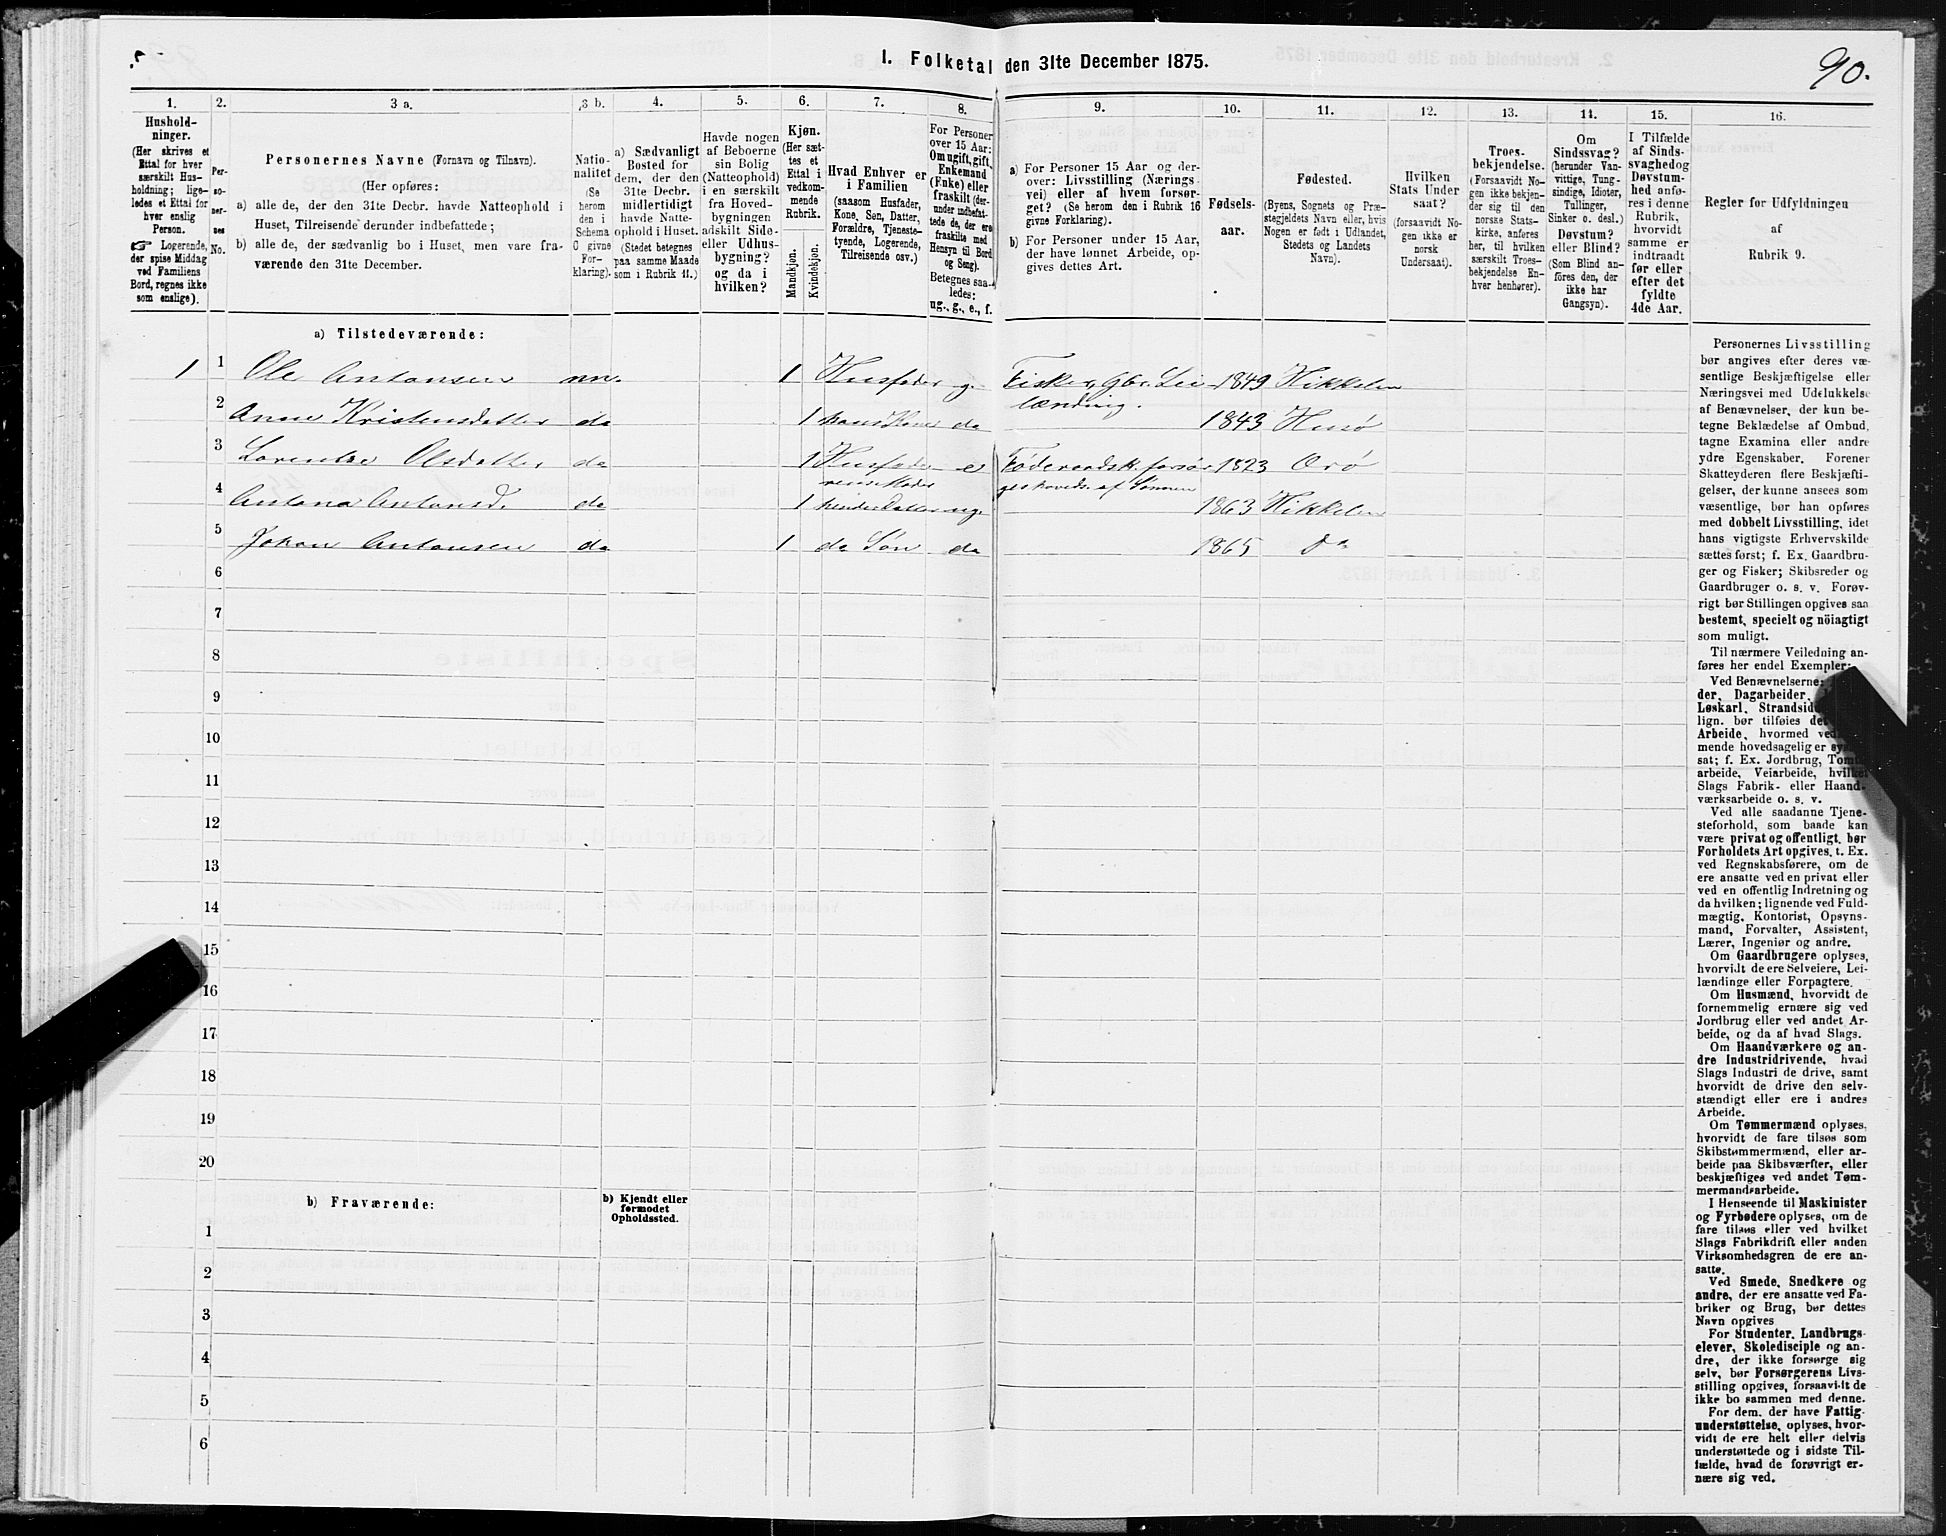 1. Folketal den 31te December 1875.
90.
1.
2.
3 a.
3 b.
4.
5.
6.
7.
8.
9.
10.
11.
12.
13.
14.
15.
16.
Hushold-
ninger.
(Her skrives et
Ettal for hver
særskilt Hus-
holdning; lige-
ledes et Ettal for
hver enslig
Person.
☞ Logerende,
der spise Middag
ved Familiens
Bord, regnes ikke
som enslige).
Per-
so-
ner-
nes
No.
Personernes Navne (Fornavn og Tilnavn).
(Her opføres:
a) alle de, der den 31te Decbr. havde Natteophold i
Huset, Tilreisende derunder indbefattede;
b) alle de, der sædvanlig bo i Huset, men vare fra-
værende den 31te December.
Natio-
nalitet
(Se
herom
den i
Schema
C givne
For-
klaring).
a) Sædvanligt
Bosted for
dem, der den
31te Decbr.
midlertidigt
havde Natte-
ophold i Huset.
(Stedet betegnes
paa samme Maade
som i Rubrik 11.)
Havde nogen
af Beboerne
sin Bolig
(Natteophold)
i en særskilt
fra Hoved-
bygningen
adskilt Side-
eller Udhus-
bygning?
og da i
hvilken?
Kjøn.
(Her sæt-
tes et
Ettal i
vedkom-
mende
Rubrik.
Mandkjøn.
Kvindekjøn.
Hvad Enhver er
i Familien
(saasom Husfader,
Kone, Søn, Datter,
Forældre, Tjeneste-
tyende, Logerende,
Tilreisende osv.)
For Personer
over 15 Aar:
Om ugift, gift,
Enkemand
(Enke) eller
fraskilt (der-
under indbefat-
tede de, der ere
fraskilte med
Hensyn til Bord
og Seng).
Betegnes saa-
ledes:
ug., g., e., f.
a) For Personer 15 Aar og der-
over: Livsstilling (Nærings-
vei) eller af hvem forsør-
get? (Se herom den i Rubrik 16
givne Forklaring).
b) For Personer under 15 Aar,
der have lønnet Arbeide, op-
gives dettes Art.
Fødsels-
aar.
Fødested.
(Byens, Sognets og Præ-
stegjeldets Navn eller, hvis
Nogen er født i Udlandet,
Stedets og Landets
Navn).
Hvilken
Stats Under
saat?
(forsaavidt No-
gen ikke er
norsk
Undersaat).
Troes-
bekjendelse.
(Forsaavidt No-
gen ikke bekjen-
der sig til den
norske Stats-
kirke, anføres
her, til hvilken
særskilt Troes-
bekjendelse En-
hver henhører).
Om
Sindssvag?
(herunder Van-
vittige, Tung-
sindige, Idioter,
Tullinger,
Sinker o. desl.)
Døvstum?
eller Blind?
(Som Blind an-
føres den, der
ikke har
Gangsyn).
I Tilfælde
af Sinds-
svaghed og
Døvstum-
hed anfø-
res i denne
Rubrik,
hvorvidt
samme er
indtraadt
før eller
efter det
fyldte
4de Aar.
Regler for Udfyldningen
af
Rubrik 9.
a) Tilstedeværende:
1 1 Ole Antonsen nn. 1 Husfader g. Fisker, Gbr. Lei-
lænding. 1849 Hikkelen
2 Anne Kristensdatter do 1 hans Kone do 1843
3 Olsdatter do 1 e 1823
4 Antona Antonsd. do 1 hendes Datter ug. 1863 Hikkelen
5 Johan Antonsen do 1 do Søn do 1865 do
6
7
8
9
10
11
12
13
14
15
16
17
18
19
20
b) Fraværende:
b) Kjendt eller
formodet
Opholdssted.
1
2
3
4
5
6
Personernes Livsstilling
bør angives efter deres væ-
sentlige Beskjæftigelse eller
Næringsvei med Udelukkelse
af Benævnelser, der kun be-
tegne Beklædelse af Ombud,
tagne Examina eller andre
ydre Egenskaber. Forener
Skatteyderen flere Beskjæfti-
gelser, der kunne ansees som
væsentlige, bør han opføres
med dobbelt Livsstilling, idet
hans vigtigste Erhvervskilde
sættes først; f. Ex. Gaardbru-
ger og Fisker; Skibsreder og
Gaardbruger o. s. v. Forøv-
rigt bør Stillingen opgives saa
bestemt, specielt og nöiagtigt
som muligt.
Til nærmere Veiledning an-
føres her endel Exempler:
Ved Benævnelserne:
der, Dagarbeider,
Løskarl, Strandsid
lign. bør tilføies det
Arbeide, hvormed ved
mende hovedsagelig er sys
sat; f. Ex. Jordbrug, Tomt
arbeide, Veiarbeide, hvilket
Slags Fabrik- eller Haand-
værksarbeide o. s. v.
Ved alle saadanne Tjene-
steforhold, som baade kan
være privat og offentligt, bør
Forholdets Art opgives, t. Ex.
ved Regnskabsførere, om de
ere ansatte ved en privat eller
ved en offentlig Indretning og
da hvilken; lignende ved Fuld-
mægtig, Kontorist, Opsyns-
mand, Forvalter, Assistent,
Lærer, Ingeniør og andre.
Om Gaardbrugere oplyses,
hvorvidt de ere Selveiere, Lei-
lændinge eller Forpagtere.
Om Husmænd, hvorvidt de
fornemmelig ernære sig ved
Jordbrug eller ved andet Ar-
beide, og da af hvad Slags.
Om Haandværkere og an-
dre Industridrivende, hvad
Slags Industri de drive, samt
hvorvidt de drive den selv-
stændigt eller ere i andres
Arbeide.
Om Tømmermænd oplyses,
hvorvidt de fare tilsøs som
Skibstømmermænd, eller ar-
beide paa Skibsværfter, eller
beskjæftiges ved andet Tøm-
mermandsarbeide.
I Henseende til Maskinister
og Fyrbødere oplyses, om de
fare tilsøs eller ved hvilket
Slags Fabrikdrift eller anden
Virksomhedsgren de ere an-
satte.
Ved Smede, Snedkere og
andre, der ere ansatte ved Fa-
briker og Brug, bør dettes
Navn opgives
For Studenter, Landbrugs-
elever, Skoledisciple og an-
dre, der ikke forsørge sig
selv, bør Forsørgerens Livs-
stilling opgives, forsaavidt de
ikke bo sammen med denne.
For dem, der have Fattig-
understøttelse, oplyses, hvor-
vidt de ere helt eller delvis
understøttede og i sidste Til-
fælde, hvad de forøvrigt er-
nære sig ved.